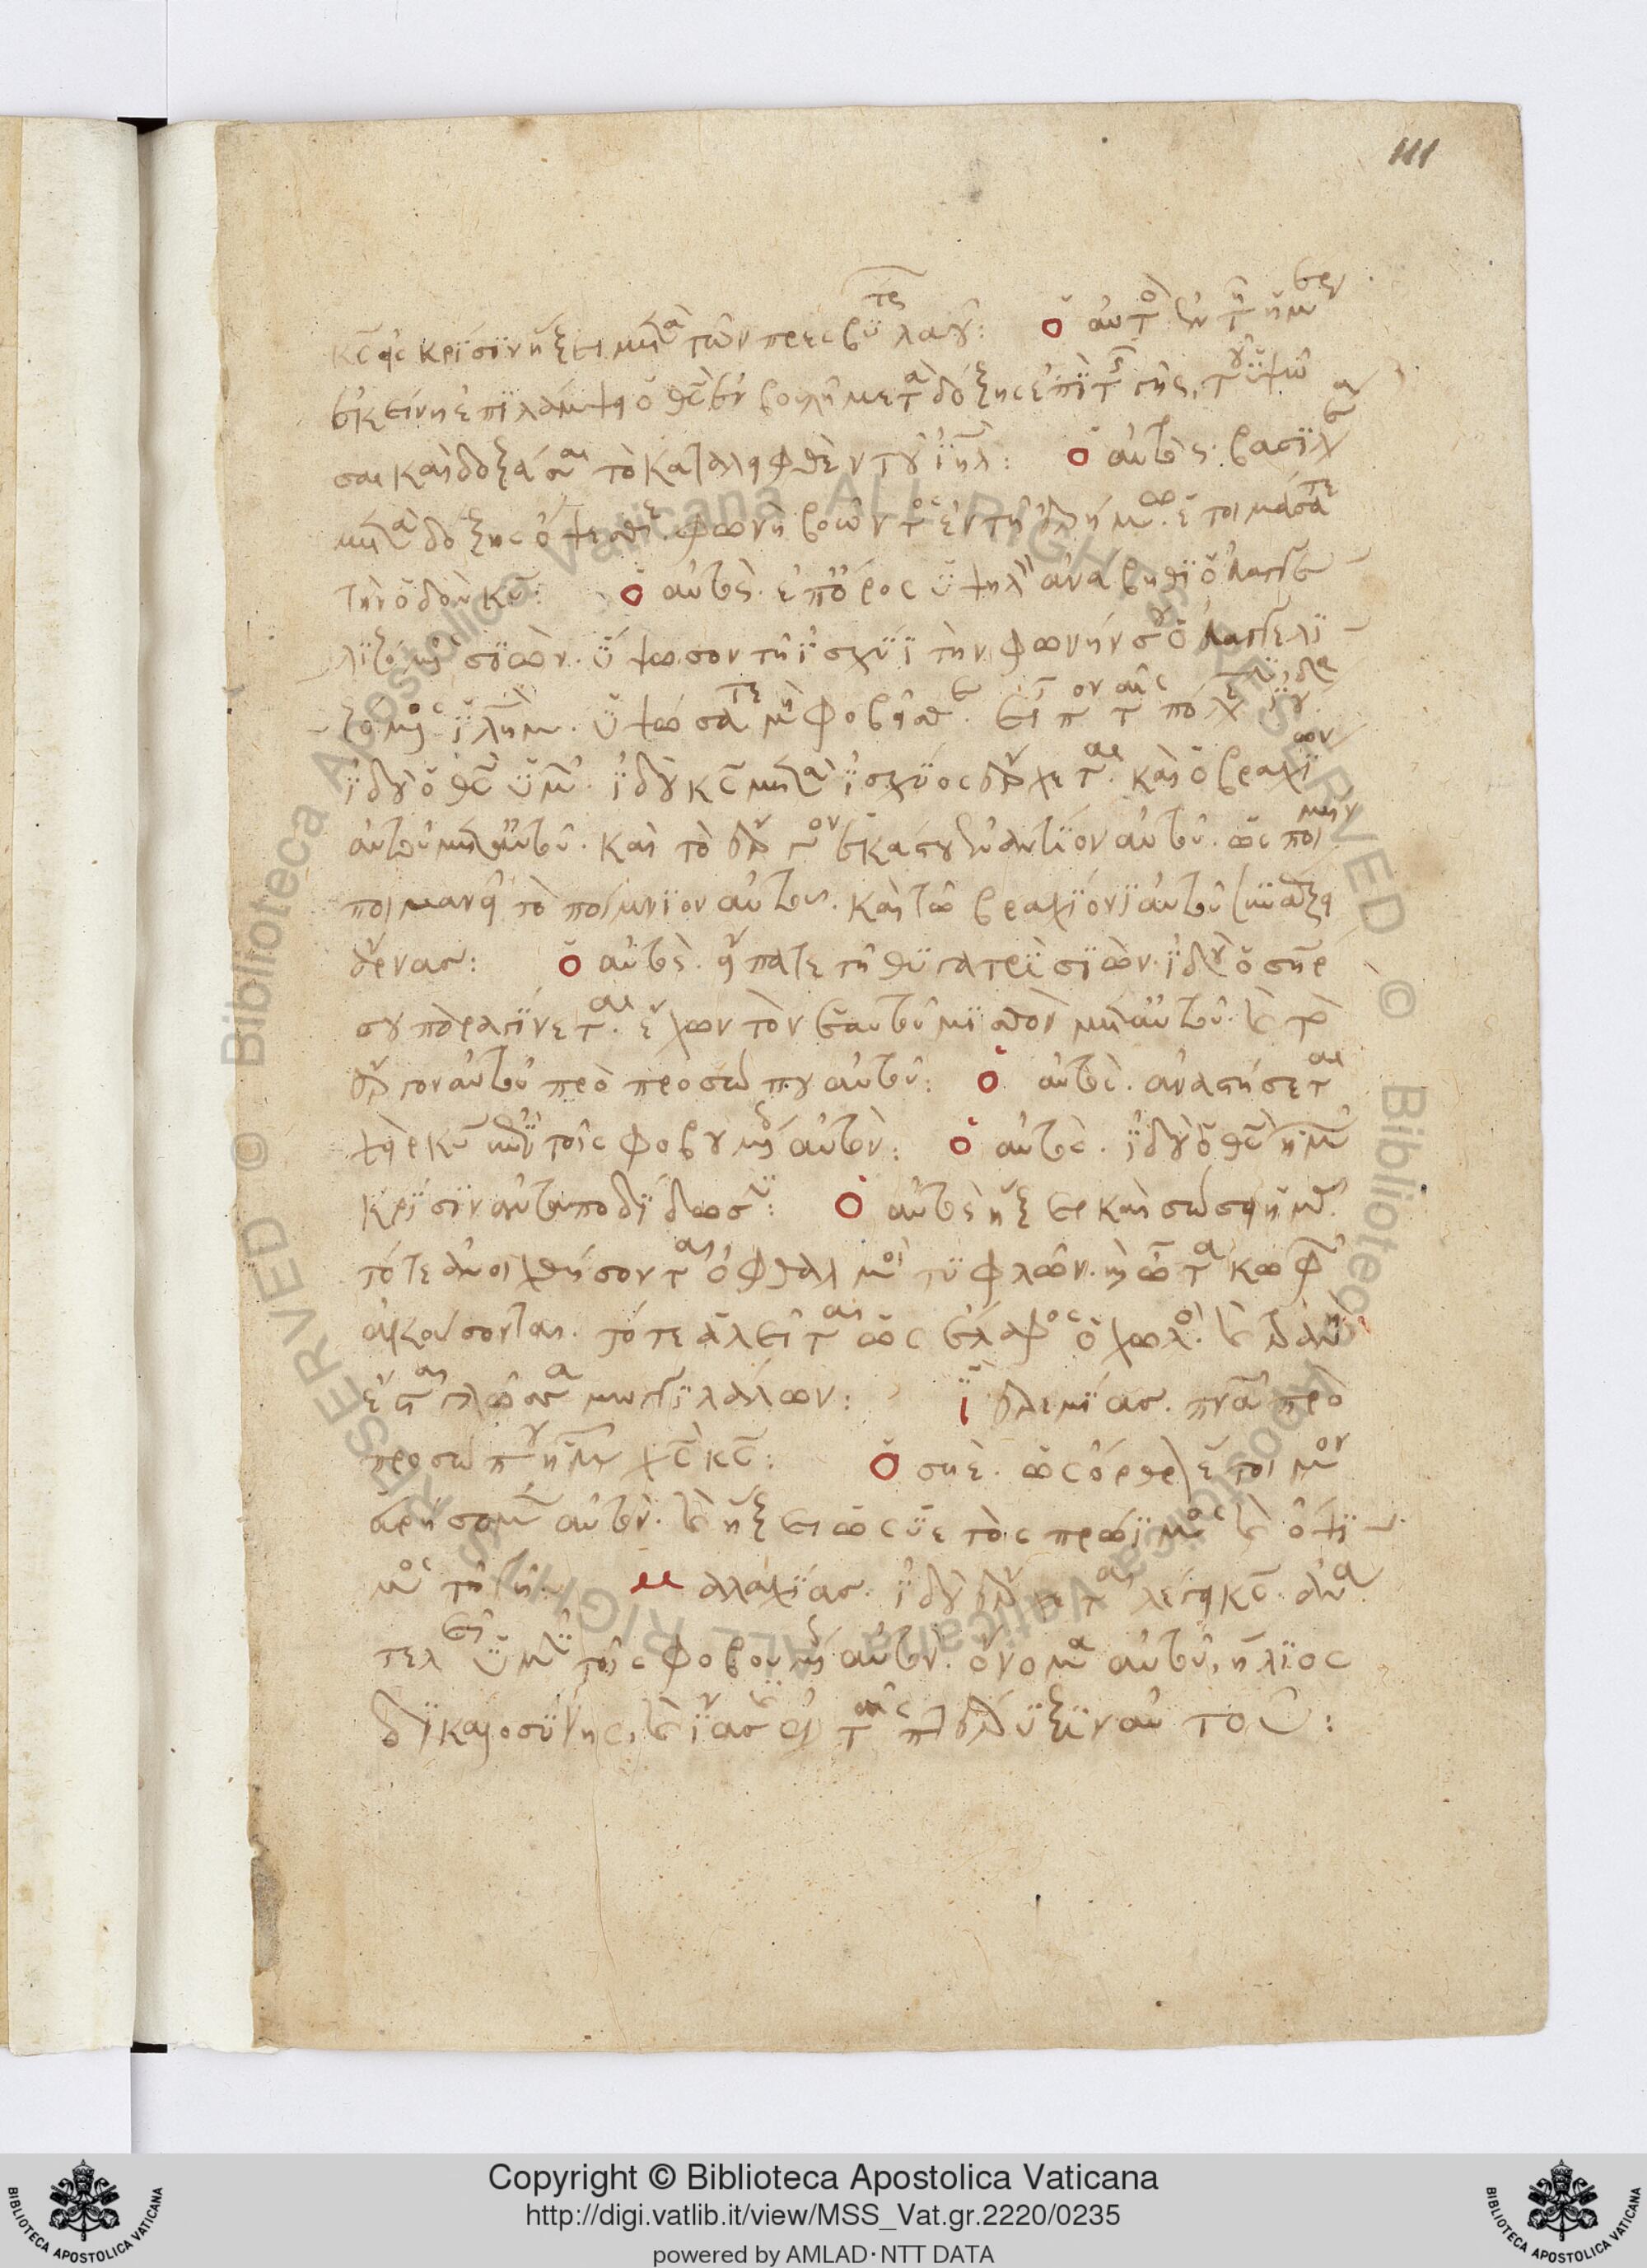 111
κς εἰς κρίσιν ἥξει μετὰ τῶν πρεσβυτέρ λαοῦ: ὁ αὐτὸς ἐν τῇ ἡμέρᾳ
ἐκείνῃ ἐπιλάμψει ὁ θς ἐν βουλῇ μετὰ δόξης ἐπὶ τῆς γῆς, τοῦ ὑψῶ
σαι καὶ δοξάσαι τὸ καταλειφθὲν τοῦ ιηλ: ὁ αὐτὸς. βασιλέα
μετὰ δόξης ὄψεσθε. φωνὴ βοῶντος ἐν τῇ ἐρήμῳ. ἑτοιμάσατε
τὴν ὁδὸν κυ: ὁ αὐτὸς. ἐπ ὄρος ὑψηλὸν ἀνάβηθι ὁ εὐαγγε
λιζόμενος σιών. ὕψωσον τῇ ἰσχύϊ τὴν φωνήν σου ὁ εὐαγγελι
ζόμενος ιλημ. ὑψώσατε μὴ φοβεῖσθε. εἶπον ταῖς πόλεσιν ἰούδα
ἰδοὺ ὁ θς ὑμῶν. ἰδοὺ κς μετὰ ἰσχύος ἔρχεται. καὶ ὁ βραχίων
αὐτοῦ μετ αὐτοῦ. καὶ τὸ ἔργον ἑκάστου ἐναντίον αὐτοῦ. ὡς ποιμὴν
ποιμανεῖ τὸ ποίμνιον αὐτοῦ. καὶ τῷ βραχίονι αὐτοῦ συνάξει
ἄρνας: ὁ αὐτὸς. εἴπατε τῇ θυγατρὶ σιών. ἰδοὺ ὁ σηρ
σου παραγίνεται. ἔχων τὸν ἑαυτοῦ μισθὸν μετ αὐτοῦ. καὶ τὸ
ἔργον αὐτοῦ πρὸ προσώπου αὐτοῦ: ὁ αὐτὸς. ἀναστήσεται
χεὶρ κυ σὺν τοῖς φοβουμένοις αὐτόν: ὁ αὐτὸς. ἰδοὺ ὁ θς ἡμῶν
κρίσιν ἀνταποδίδωσι: ὁ αὐτὸς ἥξει καὶ σώσει ἡμᾶς.
τότε ἀνοιχθήσονται ὀφθαλμοὶ τυφλῶν. καὶ ὦτα κωφῶν
ἀκούσονται. τότε ἁλεῖται ὡς ἔλαφος ὁ χωλός. καὶ τρανὴ
ἔσται γλῶσσα μογγιλάλων: ἱερεμίας. πνα πρὸ
προσώπου ἡμῶν χς κς: ὁσηέ. ὡς ὄρθρον ἕτοιμον
εὑρήσομεν αὐτόν. καὶ ἥξει ὡς ὑετὸς πρώϊμος καὶ ὄψι
μος τῇ γῇ. μαλαχίας. ἰδοὺ ἔρχεται λέγει κς. ἀνα
τελεῖ ὑμῖν τοῖς φοβουμένοις αὐτόν. ὄνομα αὐτοῦ, ἥλιος
δικαιοσύνης, καὶ ἴασις ἐν ταῖς πτέρυξιν αὐτοῦ:
Copyright © Biblioteca Apostolica Vaticana
http://digi.vatlib.it/view/MSS_Vat.gr.2220/0235
powered by AMLAD·NTT DATA